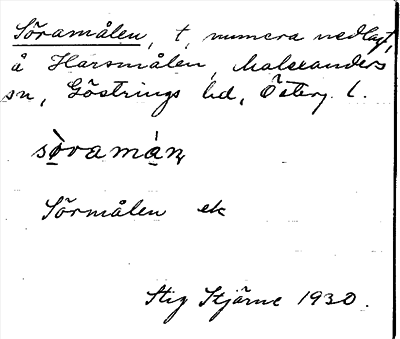 Söramålen, t, numera nedlagt,
å Harsmålen, Malexanders
sn, Göstrings hd, Österg. l.
sòramán
Sörmålen ek
Stig Stjärne 1930.